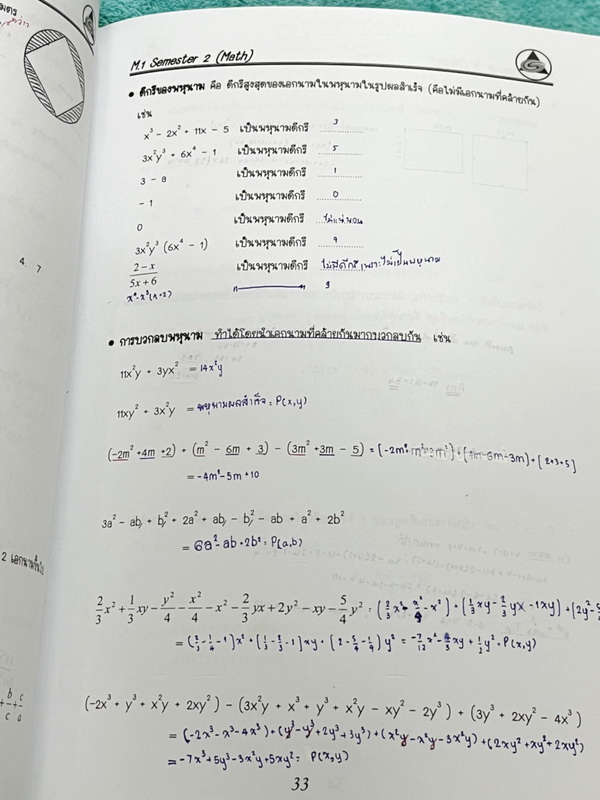 M.1 Semester 2 (Math)
• ดีกรีของพหุนาม คือ ดีกรีสูงสุดของเอกนามในพหุนามในรูปผลสำเร็จ (คือไม่มีเอกนามที่คล้ายกัน)
เช่น
x³ - 2x² + 11x - 5 เป็นพหุนามดีกรี 3
3x²y³ + 6x⁴ - 1 เป็นพหุนามดีกรี 5
3 - a เป็นพหุนามดีกรี 1
- 1 เป็นพหุนามดีกรี 0
0 เป็นพหุนามดีกรี ไม่แน่นอน
3x²y³ (6x⁴ - 1) เป็นพหุนามดีกรี 9
(2 - x)/(5x + 6) เป็นพหุนามดีกรี ไม่มีดีกรี เพราะไม่เป็นพหุนาม
3
4, 7
• การบวกลบพหุนาม ทำได้โดยนำเอกนามที่คล้ายกันมาบวกลบกัน เช่น
11x²y + 3yx² = 14x²y
11xy² + 3x²y = พหุนามผลสำเร็จ = P(x,y)
(-2m² +4m +2) + (m² - 6m + 3) - (3m² +3m - 5) = (-2m²+m²-3m²)+(4m-6m-3m)+(2+3+5)
= -4m²-5m+10
3a² - ab + b² + 2a² + ab - b² - ab + a² + 2b²
= 6a²-ab+2b² = P(a,b)
2/3x² + 1/3xy - y²/4 - x²/4 - x² - 2/3yx + 2y² - xy - 5/4y² = (2/3x²-x²/4-x²)+(1/3xy-2/3yx-1xy)+(2y²-5
= (2/3-1/4-1)x²+(1/3-2/3-1)xy+(2-5/4-1/4)y² = -7/12x²-4/3xy+1/2y² = P(x,y)
(-2x³ + y³ + x²y + 2xy²) - (3x²y + x³ + y³ + x²y - xy² - 2y³) + (3y³ + 2xy² - 4x³)
= (-2x³-x³-4x³)+(y³-y³+2y³+3y³)+(x²y-x²y-3x²y)+(2xy²+xy²+2xy²)
= -7x³+5y³-3x²y+5xy² = P(x,y)
33